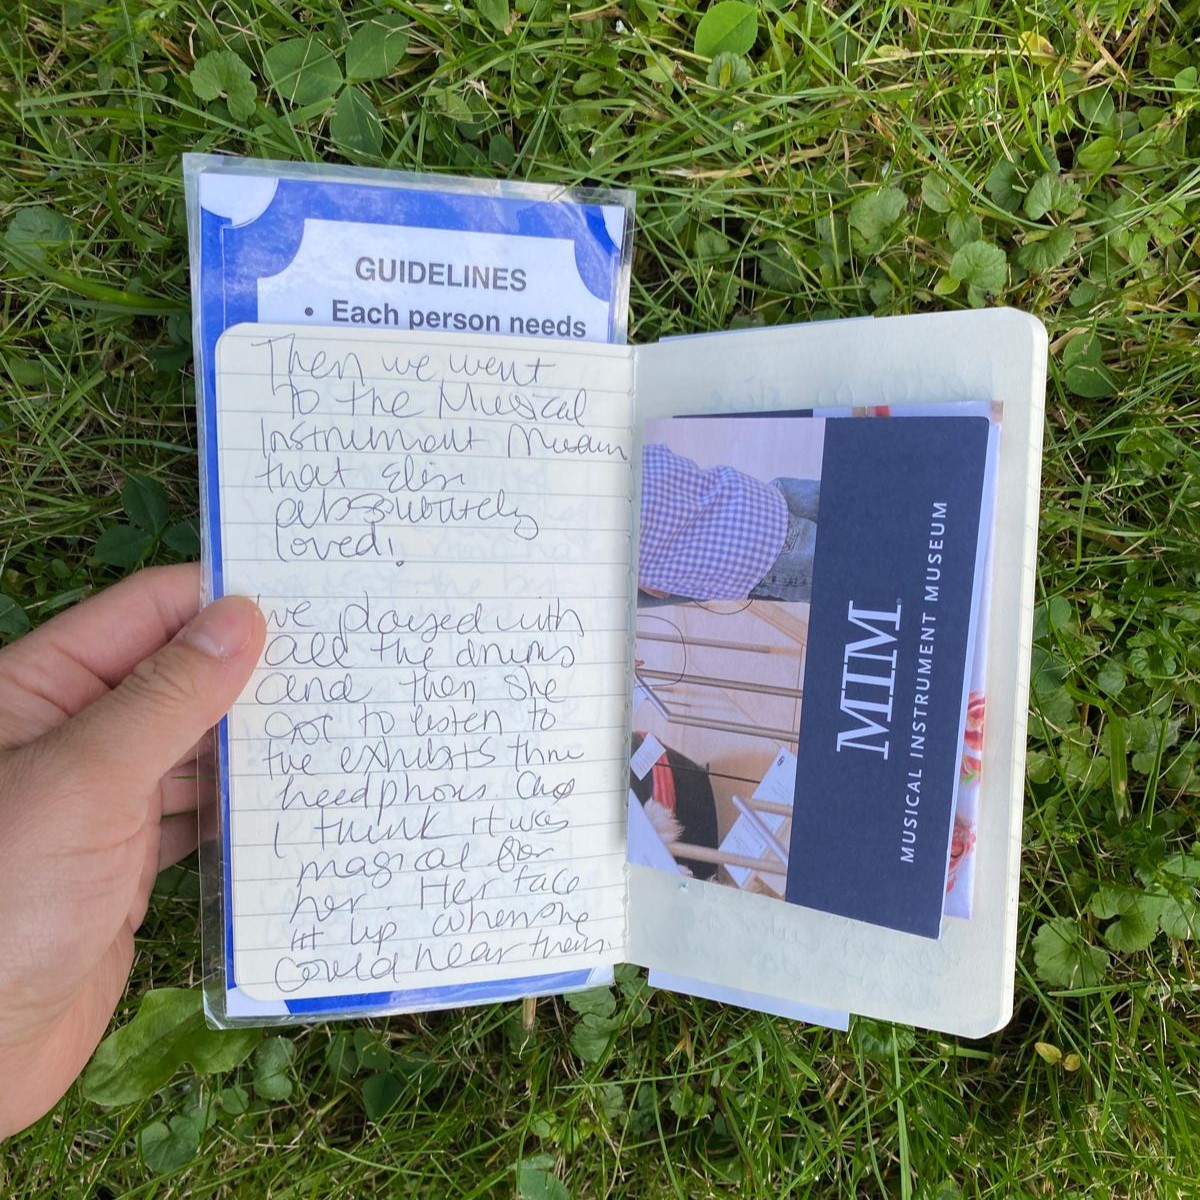 GUIDELINES
• Each person needs
Then we went
to the Musical
Instrument Museum
that Elin
absolutely
loved!
We played with
all the drums
and then she
got to listen to
the exhibits thru
headphones. And
I think it was
magical for
her. Her face
lit up when she
could hear them.
MIM
MUSICAL INSTRUMENT MUSEUM